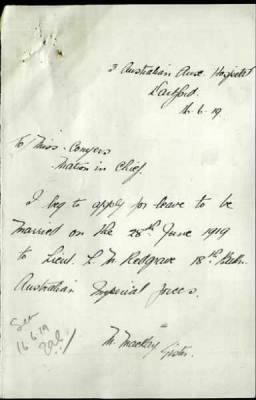 3 Australian Aux. Hospital
Dartford.
16.6.19
To Miss. Conyers
Matron in Chief.
I beg to apply for leave to be
married on the 28th June 1919
to Lieut. L. M. Redgrave 18th Battn.
Australian Imperial Forces.
Seen
16.6.19
M. Mackay Sister.